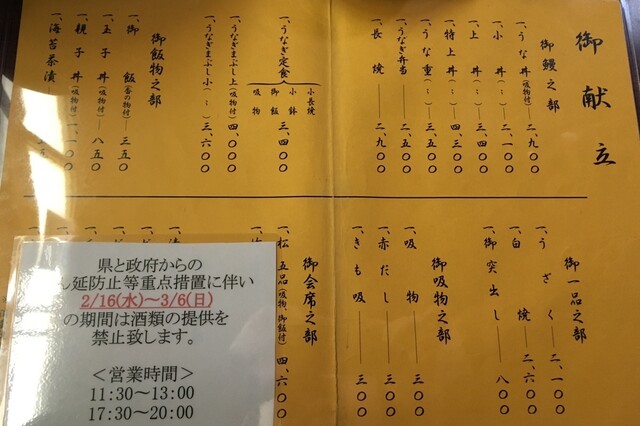 御献立
御鰻之部
一、うな丼(吸物付)―二、九〇〇
一、小丼(〃)―二、一〇〇
一、上丼(〃)―三、四〇〇
一、特上丼(〃)―四、三〇〇
一、うな重(〃)―三、五〇〇
一、うなぎ弁当―二、五〇〇
一、長焼―二、九〇〇
一、うなぎ定食
小長焼
小鉢
御飯
吸物
三、四〇〇
一、うなぎまぶし上(吸物付)四、〇〇〇
一、うなぎまぶし小(〃)三、六〇〇
御飯物之部
一、御飯(香の物付)―三五〇
一、玉子丼(吸物付)―八五〇
一、親子丼(吸物付)一、一〇〇
一、海苔茶漬
御一品之部
一、うざく―二、一〇〇
一、白焼―二、六〇〇
一、御突出し―八〇〇
御吸物之部
一、吸物―三〇〇
一、赤だし―三〇〇
一、きも吸―三〇〇
御会席之部
一、松五品(吸物・御飯付)四、六〇〇
県と政府からの
ん延防止等重点措置に伴い
2/16(水)～3/6(日)
の期間は酒類の提供を
禁止致します。
＜営業時間＞
11:30～13:00
17:30～20:00